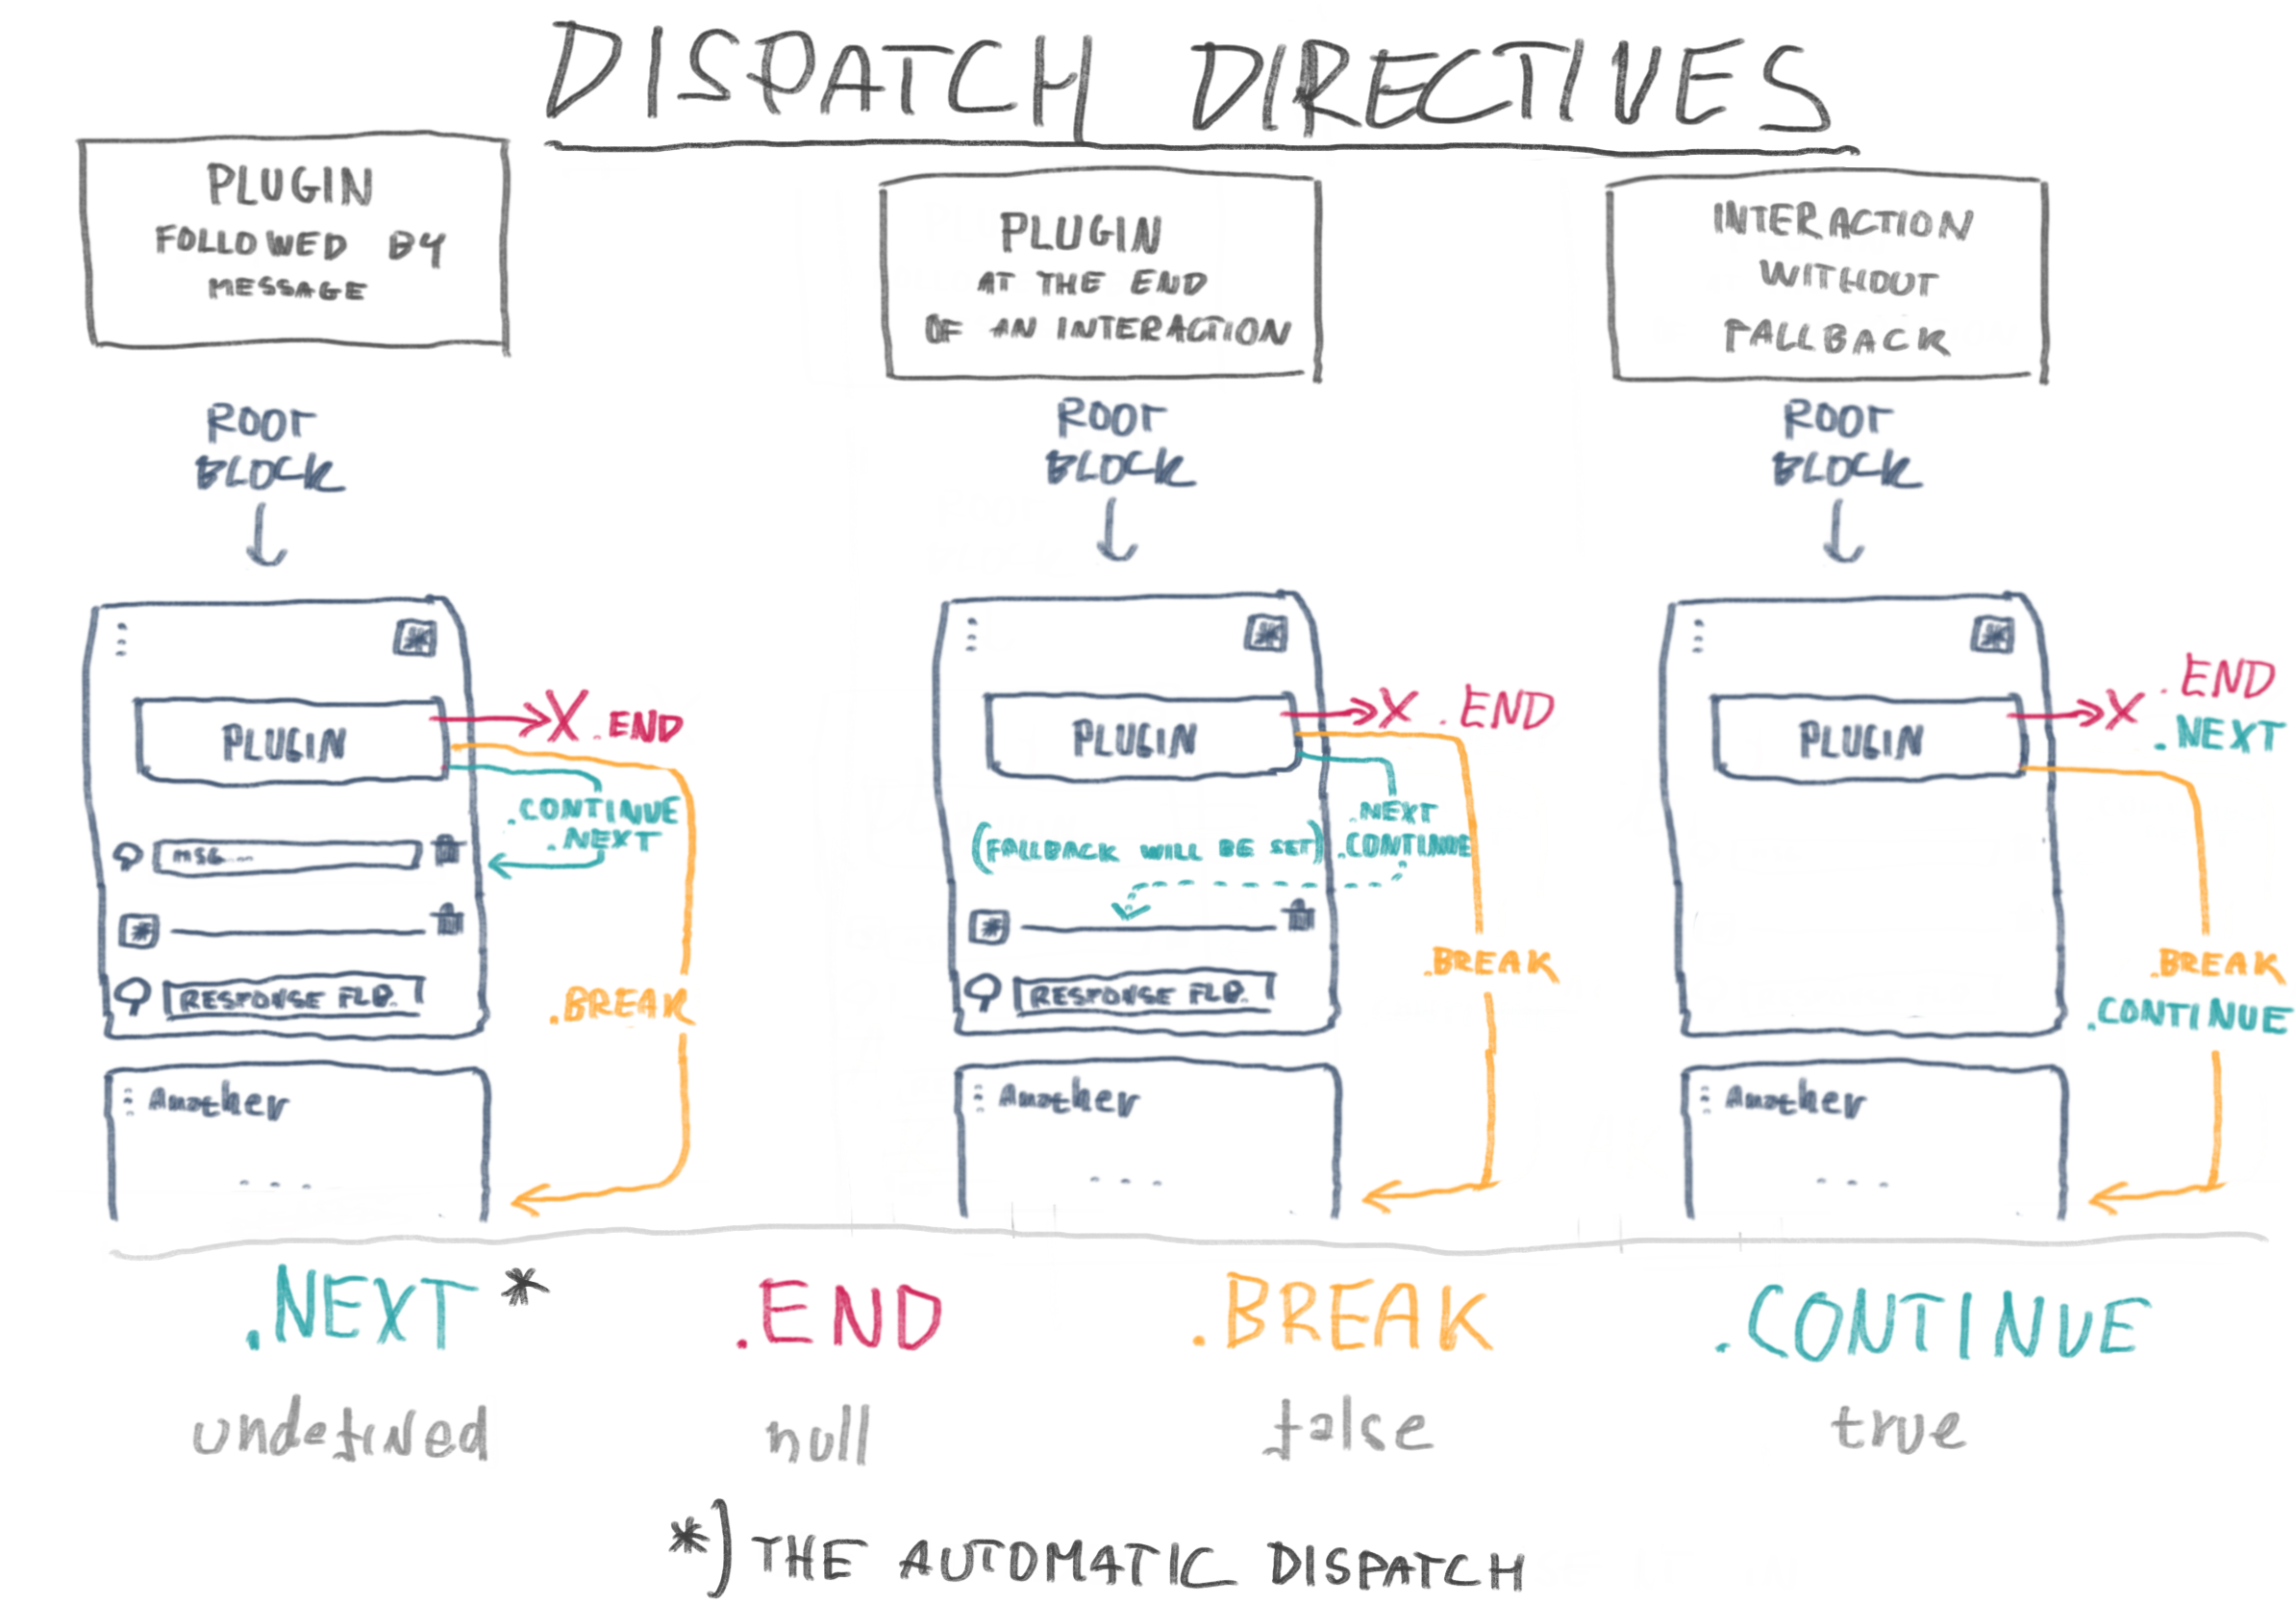 DISPATCH DIRECTIVES
PLUGIN
FOLLOWED BY
MESSAGE
ROOT
BLOCK
PLUGIN
.END
.CONTINUE
.NEXT
MSG...
RESPONSE FLD.
.BREAK
Another
...
PLUGIN
AT THE END
OF AN INTERACTION
ROOT
BLOCK
PLUGIN
.END
.NEXT
.CONTINUE
(FALLBACK WILL BE SET)
RESPONSE FLD.
.BREAK
Another
...
INTERACTION
WITHOUT
FALLBACK
ROOT
BLOCK
PLUGIN
.END
.NEXT
.BREAK
.CONTINUE
Another
...
.NEXT *
undefined
.END
null
.BREAK
false
.CONTINUE
true
*) THE AUTOMATIC DISPATCH